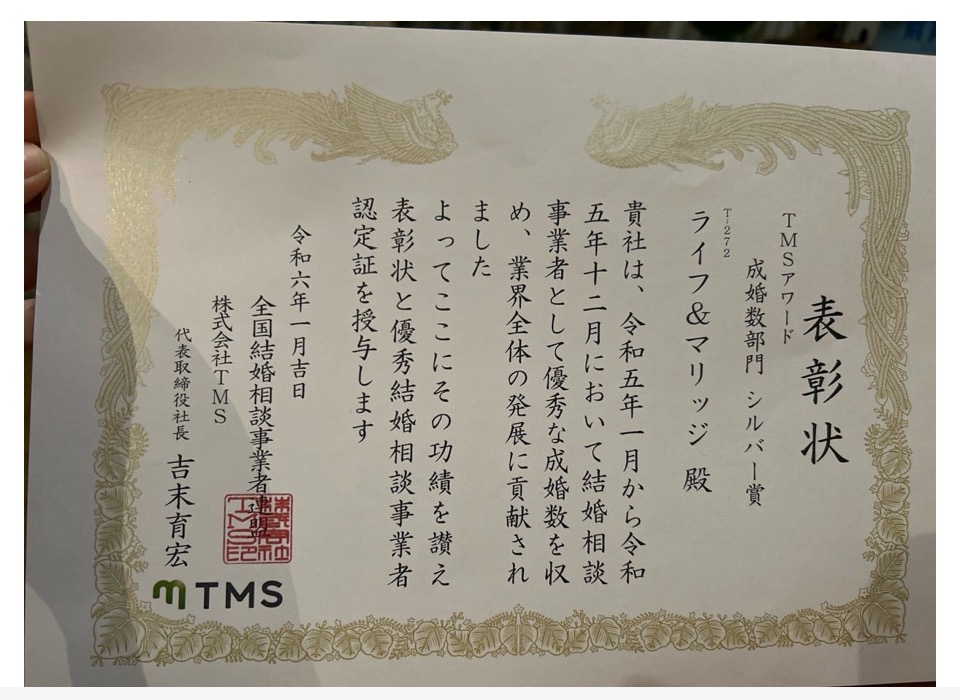 表彰状
TMSアワード
成婚数部門 シルバー賞
T-272
ライフ&マリッジ 殿
貴社は、令和五年一月から令和
五年十二月において結婚相談
事業者として優秀な成婚数を収
め、業界全体の発展に貢献され
ました
よってここにその功績を讃え
表彰状と優秀結婚相談事業者
認定証を授与します
令和六年一月吉日
全国結婚相談事業者連盟
株式会社TMS
代表取締役社長 吉末育宏
TMS